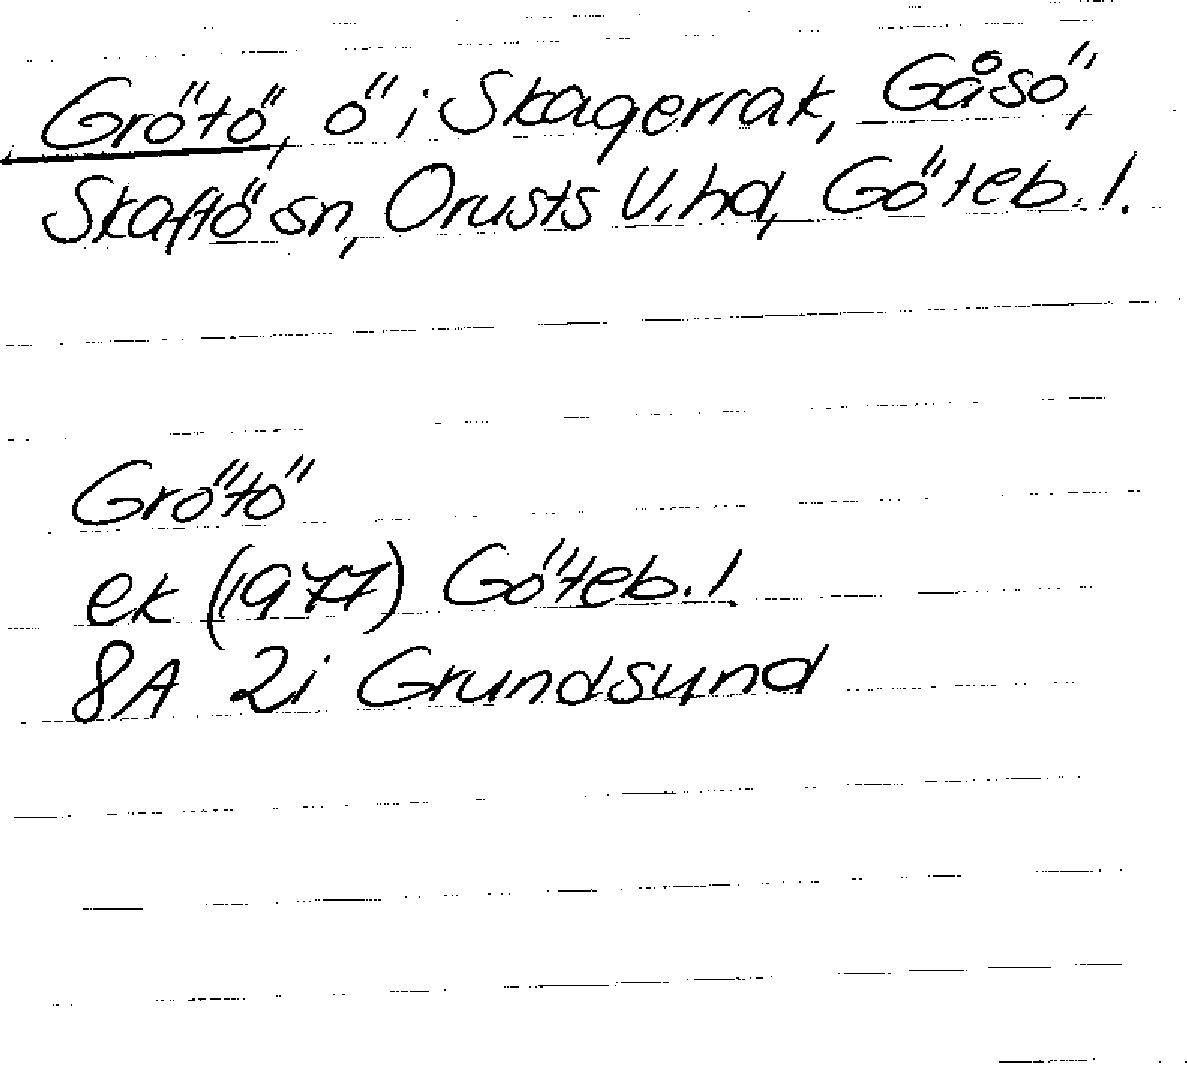 Grötö, ö i Skagerrak, Gåsö,
Skaftö sn, Orusts V. hd, Göteb. l.
Grötö
ek (1977) Göteb. l.
8A 2i Grundsund